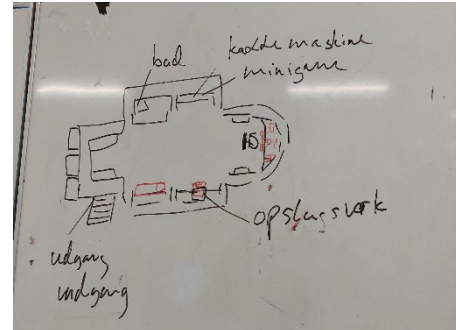 bad
kaddemaskine
minigame
15
opslagsværk
udgang
indgang